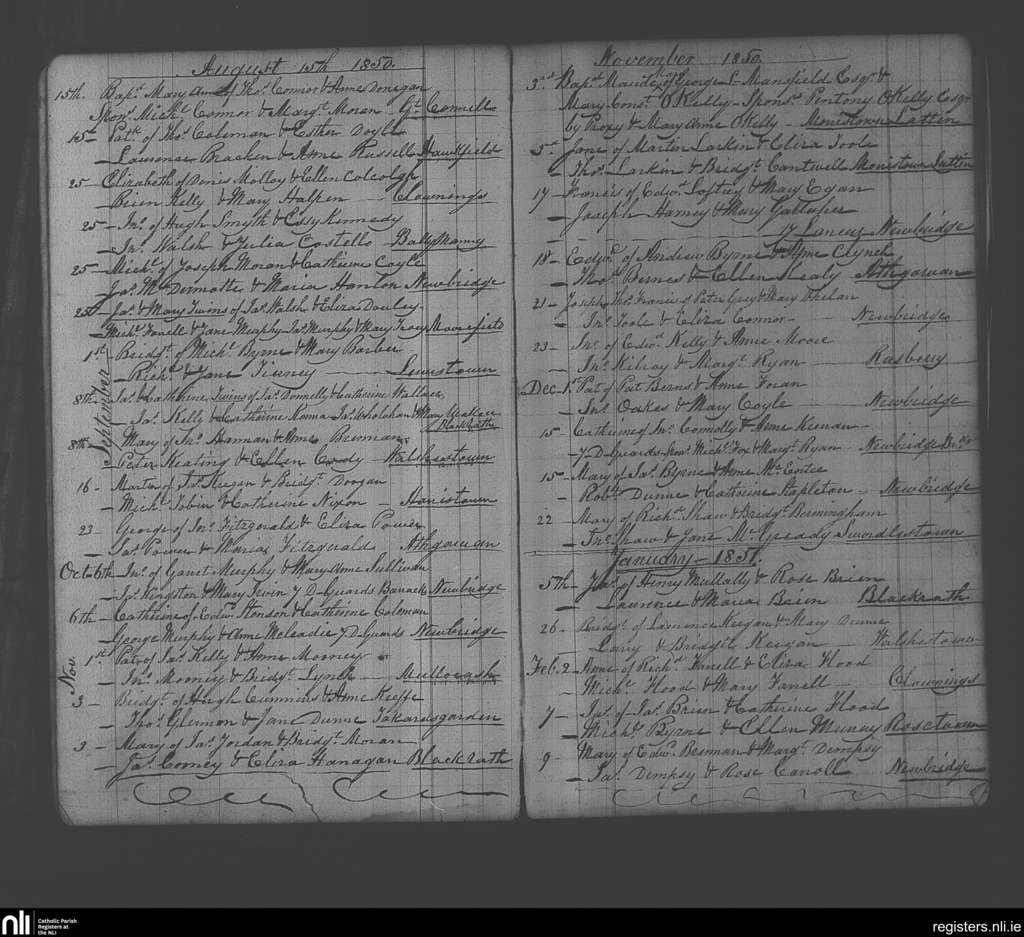 August 15th 1850.
15th. Bapt. Mary Anne of Thos. Connor & Anne Donegan
Spons. Michl. Connor & Margt. Moran - Gt. Connell
15 - Patk. of Thos. Coleman & Esther Doyle
- Laurence Bracken & Anne Russell Hawkfield
25 - Elizabeth of Denis Molloy & Ellen
Brien Kelly & Mary Halpen - Clownings
25 - Jno. of Hugh Smyth & Essy Kennedy
- Jno. Walsh & Julia Costello - Ballymanny
25 - Michl. of Joseph Moran & Catherine Coyle
- Jas. McDermotte & Maria Hanlon Newbridge
25 - Jas. & Mary Twins of Jas. Walsh & Eliza Douley
- Michl. Farrell & Jane Murphy Jas. Murphy & Mary Tracy Moorefield
September
1st - Bridgt. of Michl. Byrne & Mary Barber
- Richd. & Jane Tierney - Lewistown
8th - Jas. & Catherine Twins of Jas. Donnelly & Catherine Wallace
- Jas. Kelly & Catherine & Mary Wallace Blackrath
8th - Mary of Jno. Hannan & Anne Brennan
- Peter Keating & Ellen Cody - Walshestown
16 - Martin of Jas. Keegan & Bridgt. Doogan
- Michl. Tobin & Catherine Nixon - Harristown
23 - George of Jno. Fitzgerald & Eliza Power
- Jas. Power & Maria Fitzgerald Athgarvan
Oct. 6th - Jno. of Garret Murphy & Mary Anne Sullivan
- Jas. Kingston & Mary Irwin 7 D. Guards Barracks Newbridge
6th - Catherine of Edwd. Stenson & Catherine Coleman
- George Murphy & Anne 7 D. Guards Newbridge
Nov.
1st - Patk. of Jas. Kelly & Anne Mooney
- Jno. Mooney & Bridgt. Lynch - Mullocash
3 - Bridgt. of Hugh Cummins & Anne Keeffe
- Thos. Glennon & Jane Dunne Tokardsgarden
3 - Mary of Jas. Jordan & Bridgt. Moran
- Jas. Cooney & Eliza Hanagan Blackrath
November 1850.
3rd - Bapt. Maude of George L. Mansfield Esqr. &
Mary Const. O'Kelly - Spons. Pentony O'Kelly Esqr
by Proxy & Mary Anne O'Kelly - Moristown Lattin
5th - Jane of Martin Larkin & Eliza Toole
- Thos. Larkin & Bridgt. Cantwell Moristown Lattin
17 - Francis of Edwd. Loftey & Mary Egan
- Joseph Harney & Mary Gallaher
- 17 Lancers Newbridge
18 - Edwd. of Andrew Byrne & Anne Clynch
- Thos. Bernes & Ellen Healy Athgarvan
21 - Joseph Thos. Francis of Peter Grey & Mary Phelan
- Jno. Toole & Eliza Connor - Newbridge
23 - Jno. of Edwd. Kelly & Anne Moore
- Jno. Kilroy & Margt. Ryan - Rosberry
Dec. 1st Pat of Pat Berns & Anne Foran
- Jno. Oakes & Mary Coyle - Newbridge
15 - Catherine of Jno. Connolly & Anne Keenan -
- 7 D. Guards Spons. Michl. Fox & Margt. Ryan - Newbridge
15 - Mary of Jas. Byrne & Anne McEntee
- Robt. Dunne & Catherine Stapleton - Newbridge
22 - Mary of Richd. Shaw & Bridgt. Bermingham
- Jno. Shaw & Jane McGready Swordlestown
January - 1851.
5th - Jas. of Henry Mullally & Rose Brien
- Laurence & Maria Brien Blackrath
26 - Bridgt. of Laurence Keegan & Mary Dunne
- Larry & Bridgt. Keegan - Walshestown
Feb. 2 - Anne of Richd. Farrell & Eliza Flood
- Michl. Flood & Mary Farrell - Clownings
7 - Jas. of Jas. Brien & Catherine Flood
- Michl. Byrne & Ellen Murray Rosetown
9 - Mary of Edwd. Brennan & Margt. Dempsy
- Jas. Dempsy & Rose Carroll Newbridge
nli
Catholic Parish
Registers at
the NLI
registers.nli.ie